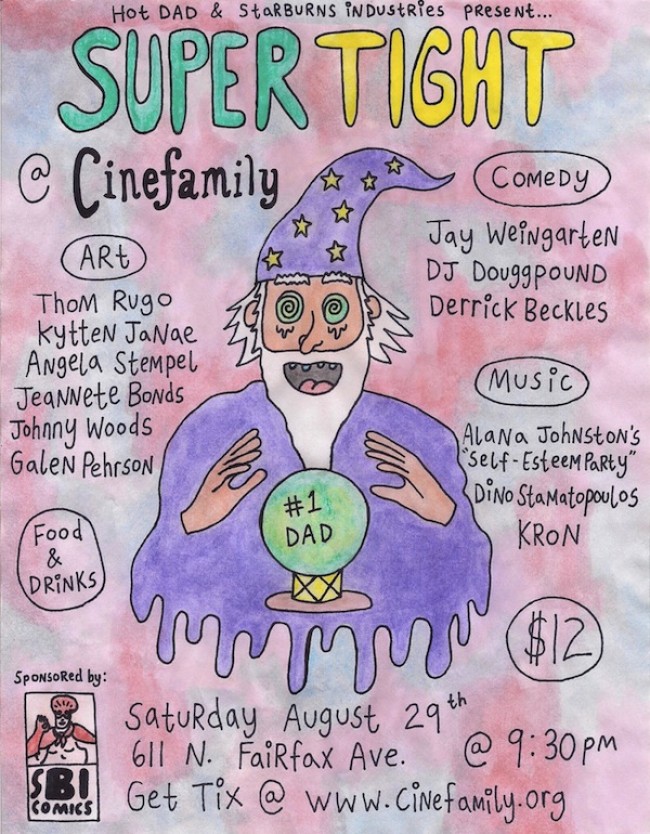 Hot DAD & StaRBURNS iNDUStRiES PRESENt...
SUPER TIGHT
@ Cinefamily
ARt
THOM RUGO
KYttEN JaNAE
ANgela StEMPEL
JEaNNEtE BONDS
JOHNNY WOODS
GalEN PEHRSON
COMEDY
Jay WEiNgaRtEN
DJ DOUggPOUND
DERRiCK BECKLES
MUSiC
ALaNa JOHNStON'S
"SElf-EstEEM PaRty"
DiNO StaMatOPOULOS
KRON
#1
DAD
Food
&
DRiNKS
$12
SPONSORED by:
SBI
COMICS
SatURday AUGUSt 29th
611 N. FaiRfax AVE.
@ 9:30PM
GEt Tix @ WWW.CiNEfamily.ORg